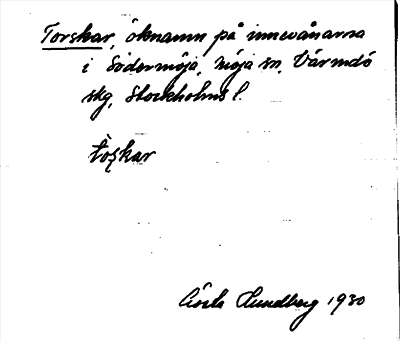 Torskar, öknamn på innevånarna
i Södermöja, Möja sn, Värmdö
skg, Stockholms l.
tòs̨kar
Gösta Lundberg 1930